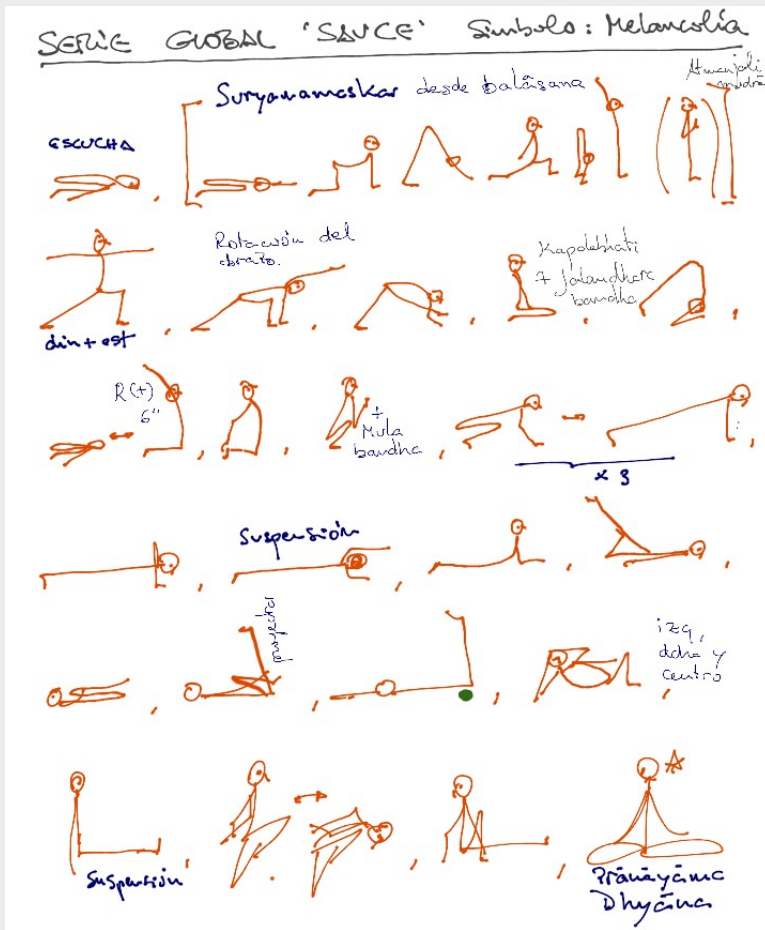 SERIE GLOBAL 'SAUCE' Símbolo: Melancolía
Suryanamaskar desde balāsana
Atmanjali
mudrā
ESCUCHA
Rotación del
brazo.
Kapalabhati
+ Jalandhara
bandha
din + est
R(+)
6"
+
Mula
bandha
x 3
Suspensión
izq,
dcha y
centro
Suspensión
Prānāyāma
Dhyāna